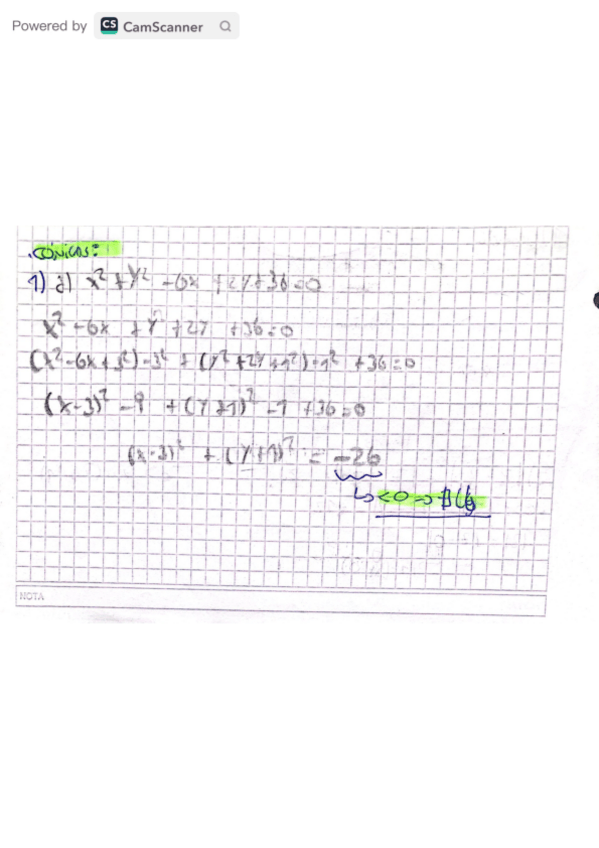 Powered by CS CamScanner
.CÓNICAS:
1) a) x² + y² - 6x + 2y + 36 = 0
x² - 6x + y² + 2y + 36 = 0
(x² - 6x + 3²) - 3² + (y² + 2y + 1²) - 1² + 36 = 0
(x-3)² - 9 + (y+1)² - 1 + 36 = 0
(x-3)² + (y+1)² = -26
↳ < 0 ⇒ ∄
NOTA